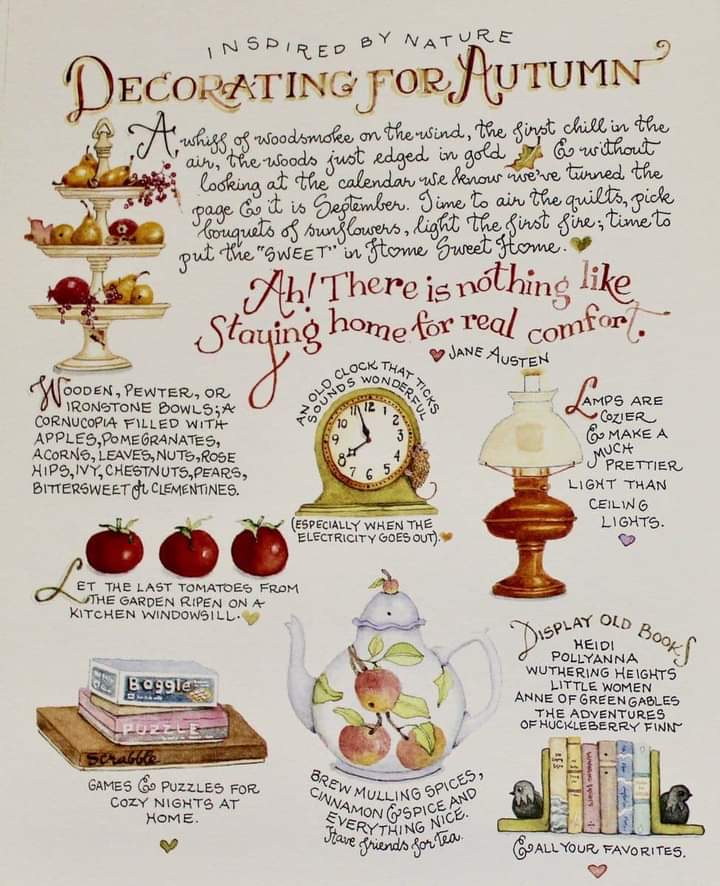 INSPIRED BY NATURE
DECORATING FOR AUTUMN
A whiff of woodsmoke on the wind, the first chill in the
air, the woods just edged in gold & without
looking at the calendar we know we've turned the
page & it is September. Time to air the quilts, pick
bouquets of sunflowers, light the first fire; time to
put the "SWEET" in Home Sweet Home.
Ah! There is nothing like
Staying home for real comfort.
JANE AUSTEN
WOODEN, PEWTER, OR
IRONSTONE BOWLS; A
CORNUCOPIA FILLED WITH
APPLES, POMEGRANATES,
ACORNS, LEAVES, NUTS, ROSE
HIPS, IVY, CHESTNUTS, PEARS,
BITTERSWEET or CLEMENTINES.
AN OLD CLOCK THAT TICKS
SOUNDS WONDERFUL
12
1
2
3
4
5
6
7
8
9
10
11
(ESPECIALLY WHEN THE
ELECTRICITY GOES OUT).
LAMPS ARE
COZIER
& MAKE A
MUCH
PRETTIER
LIGHT THAN
CEILING
LIGHTS.
LET THE LAST TOMATOES FROM
THE GARDEN RIPEN ON A
KITCHEN WINDOWSILL.
Boggle
PUZZLE
Scrabble
GAMES & PUZZLES FOR
COZY NIGHTS AT
HOME.
BREW MULLING SPICES,
CINNAMON & SPICE AND
EVERYTHING NICE.
Have friends for tea.
DISPLAY OLD BOOKS
HEIDI
POLLYANNA
WUTHERING HEIGHTS
LITTLE WOMEN
ANNE OF GREEN GABLES
THE ADVENTURES
OF HUCKLEBERRY FINN
& ALL YOUR FAVORITES.